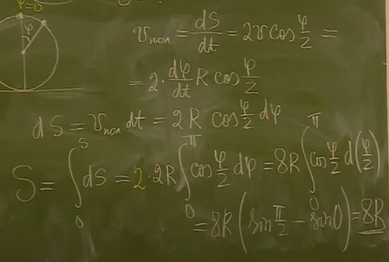 φ=0
φ
υ_пол = dS/dt = 2υ cos φ/2 =
= 2· dφ/dt R cos φ/2
dS = υ_пол dt = 2R cos φ/2 dφ
S = ∫₀^S dS = 2·2R ∫₀^π cos φ/2 dφ = 8R ∫₀^π cos φ/2 d(φ/2)
= 8R (sin π/2 − sin 0) = 8R